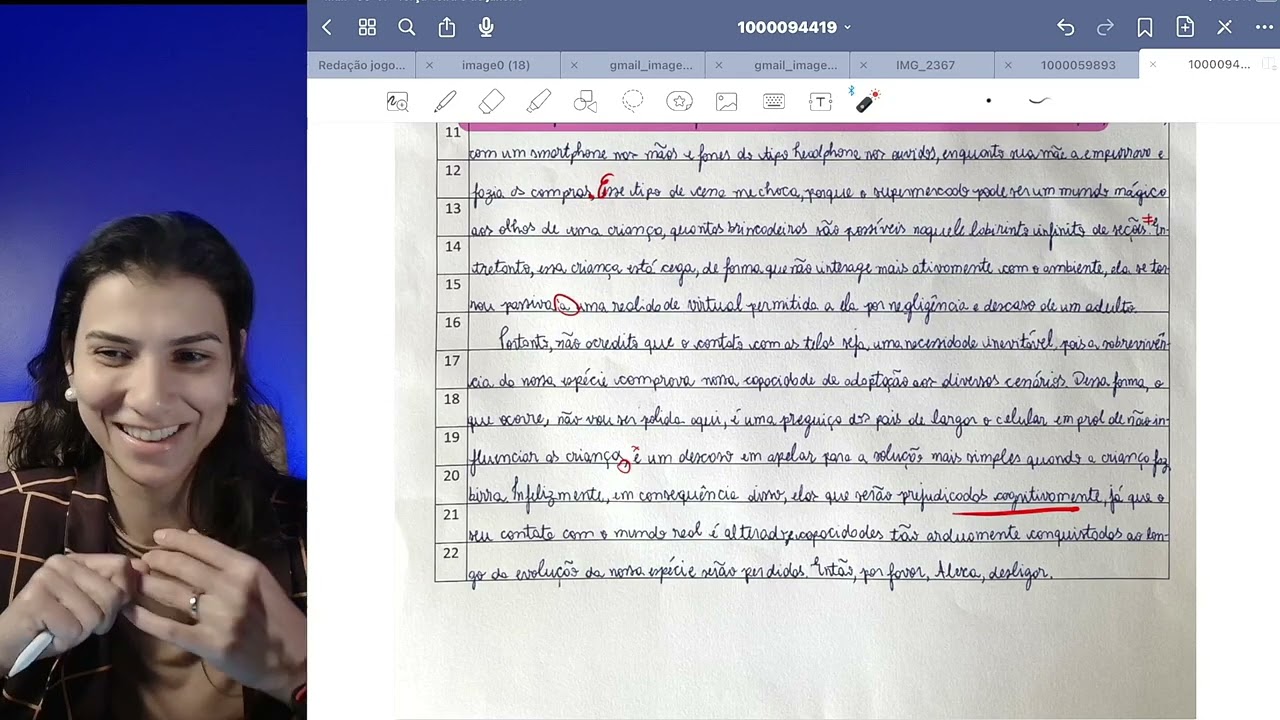 1000094419
Redação jogo...
image0 (18)
gmail_image...
gmail_image...
IMG_2367
1000059893
1000094...
T
11
com um smartphone nas mãos e fones do tipo headphone nos ouvidos, enquanto sua mãe a empurrava e
12
fazia as compras, Esse tipo de cena me choca, porque o supermercado pode ser um mundo mágico
13
aos olhos de uma criança, quantas brincadeiras são possíveis naquele labirinto infinito de seções. En-
14
tretanto, essa criança está cega, de forma que não interage mais ativamente com o ambiente, ela se tor
15
nou passiva a uma realidade virtual permitida a ela por negligência e descaso de um adulto.
16
Portanto, não acredito que o contato com as telas seja, uma necessidade inevitável, pois a sobrevivên-
17
cia da nossa espécie comprova nossa capacidade de adaptação aos diversos cenários. Dessa forma, o
18
que ocorre, não vou ser polida aqui, é uma preguiça dos pais de largar o celular em prol de não in-
19
fluenciar as crianças, é um descaso em apelar para a solução mais simples quando a criança faz
20
birra. Infelizmente, em consequência disso, elas que serão prejudicadas cognitivamente, já que o
21
seu contato com o mundo real é alterado, e capacidades tão arduamente conquistadas ao lon-
22
go da evolução da nossa espécie serão perdidas. Então, por favor, Alexa, desligar.